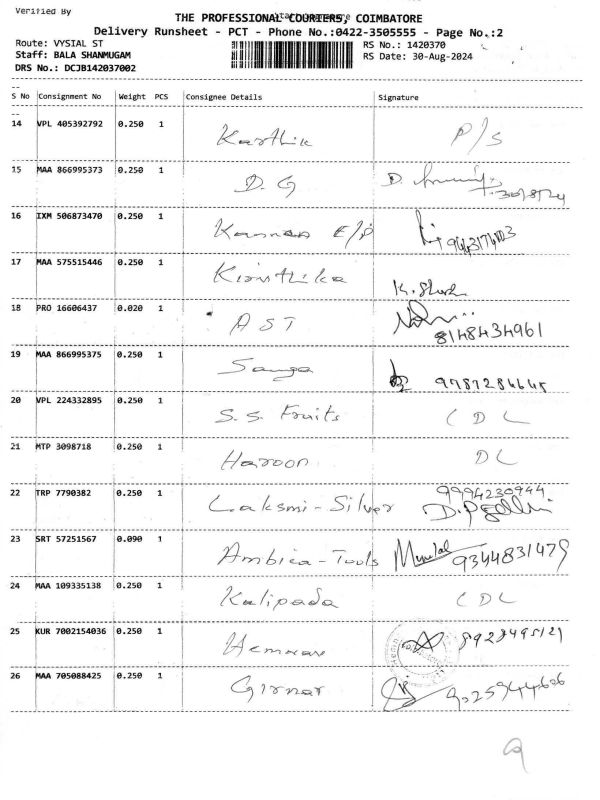 Verified By
THE PROFESSIONAL COURIERS, COIMBATORE
Delivery Runsheet - PCT - Phone No.:0422-3505555 - Page No.:2
Route: VYSIAL ST RS No.: 1420370
Staff: BALA SHANMUGAM RS Date: 30-Aug-2024
DRS No.: DCJB142037002
S No Consignment No Weight PCS Consignee Details Signature
14 VPL 405392792 0.250 1 Karthik P/S
15 MAA 866995373 0.250 1 D.G D. 30/8/24
16 IXM 506873470 0.250 1 Kannan E/P
17 MAA 575515446 0.250 1 Kirnthika
18 PRO 16606437 0.020 1 AST
8148434961
19 MAA 866995375 0.250 1 Sanga
20 VPL 224332895 0.250 1 S.S. Fruits CDL
21 MTP 3098718 0.250 1 Haroon DL
22 TRP 7790382 0.250 1 Laksmi-Silver 9994230944
23 SRT 57251567 0.090 1 Ambica-Tools 9344831479
24 MAA 109335138 0.250 1 Kalipada CDL
25 KUR 7002154036 0.250 1 8928495121
26 MAA 705088425 0.250 1 Girnar